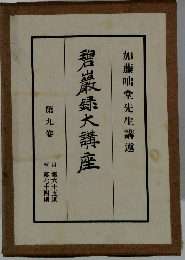 加藤咄堂先生講述
碧巖録大講座
第九卷
自第六十五則
至第七十四則